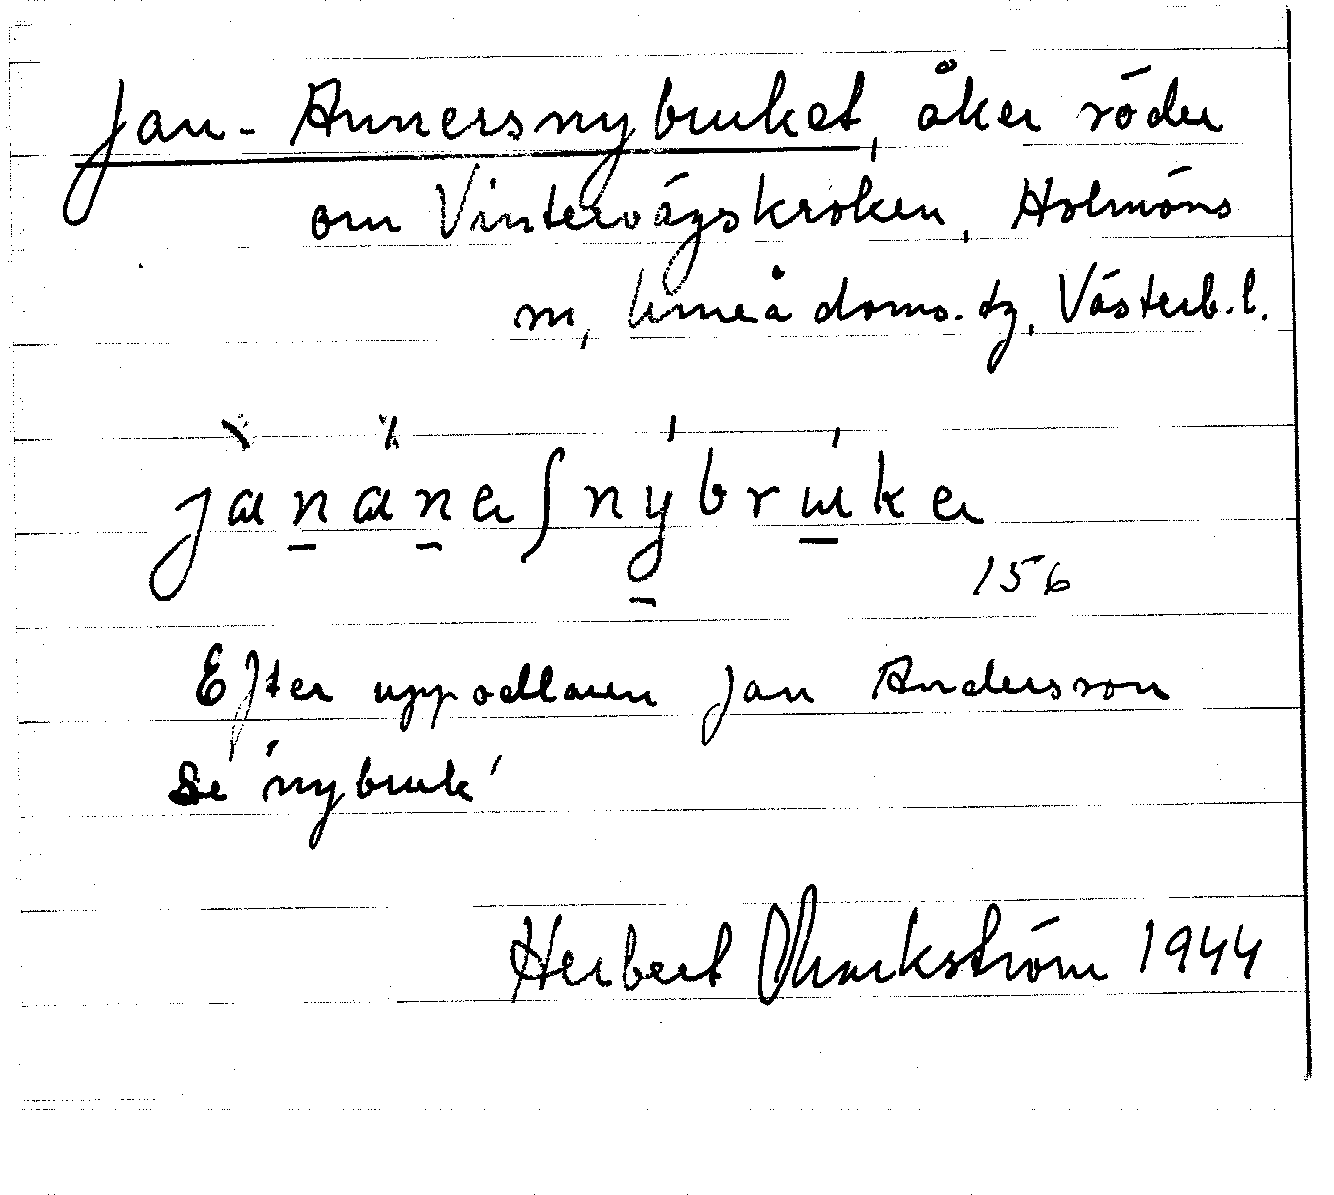 Jan-Annersnybruket, åker söder
om Vintervägskroken, Holmöns
sn, Umeå doms. tg, Västerb. l.
156
Efter uppodlaren Jan Andersson
Se 'nybruk'
Herbert Markström 1944